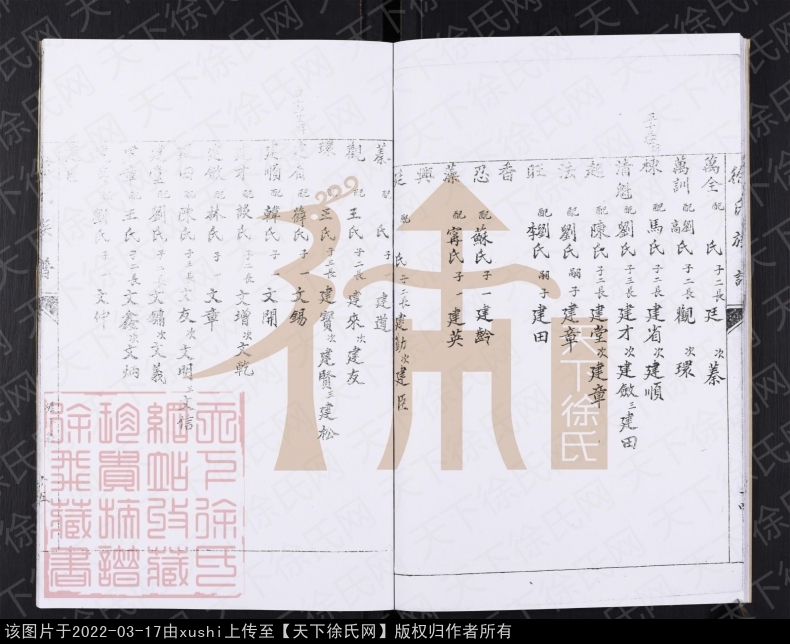 徐氏族譜
萬全 配 氏 子二長 廷 次 蓁
萬訓 配 劉高氏 子二長 觀 次 環
棟 配 馬氏 子二長 建省 次 建順
清魁 配 劉氏 子三長 建才 次 建敏 三 建田
起 配 陳氏 子二長 建堂 次 建章
法 配 劉氏 嗣子 建章
旺 配 劉李氏 嗣子 建田
香
忍 配 蘇氏 子一 建齡
藻 配 甯氏 子一 建英
興
廷 配 氏 子二長 建勛 次 建臣
蓁 配 氏 子一 建道
觀 配 王氏 子二長 建來 次 建友
環 配 三氏 子三長 建寶 次 建賢 三 建松
建省 配 薛氏 子一 文錫
建順 配 韓氏 子一 文開
建才 配 談氏 子二長 文增 次 文乾
建敏 配 林氏 子一 文章
建田 配 陳氏 子三長 文友 次 文明 三 文信
建堂 配 劉氏 子二長 文鏞 次 文義
建章 配 王氏 子二長 文鑫 次 文炳
劉氏 子一 文仲
天下徐氏
天下徐氏网
该图片于2022-03-17由xushi上传至【天下徐氏网】版权归作者所有